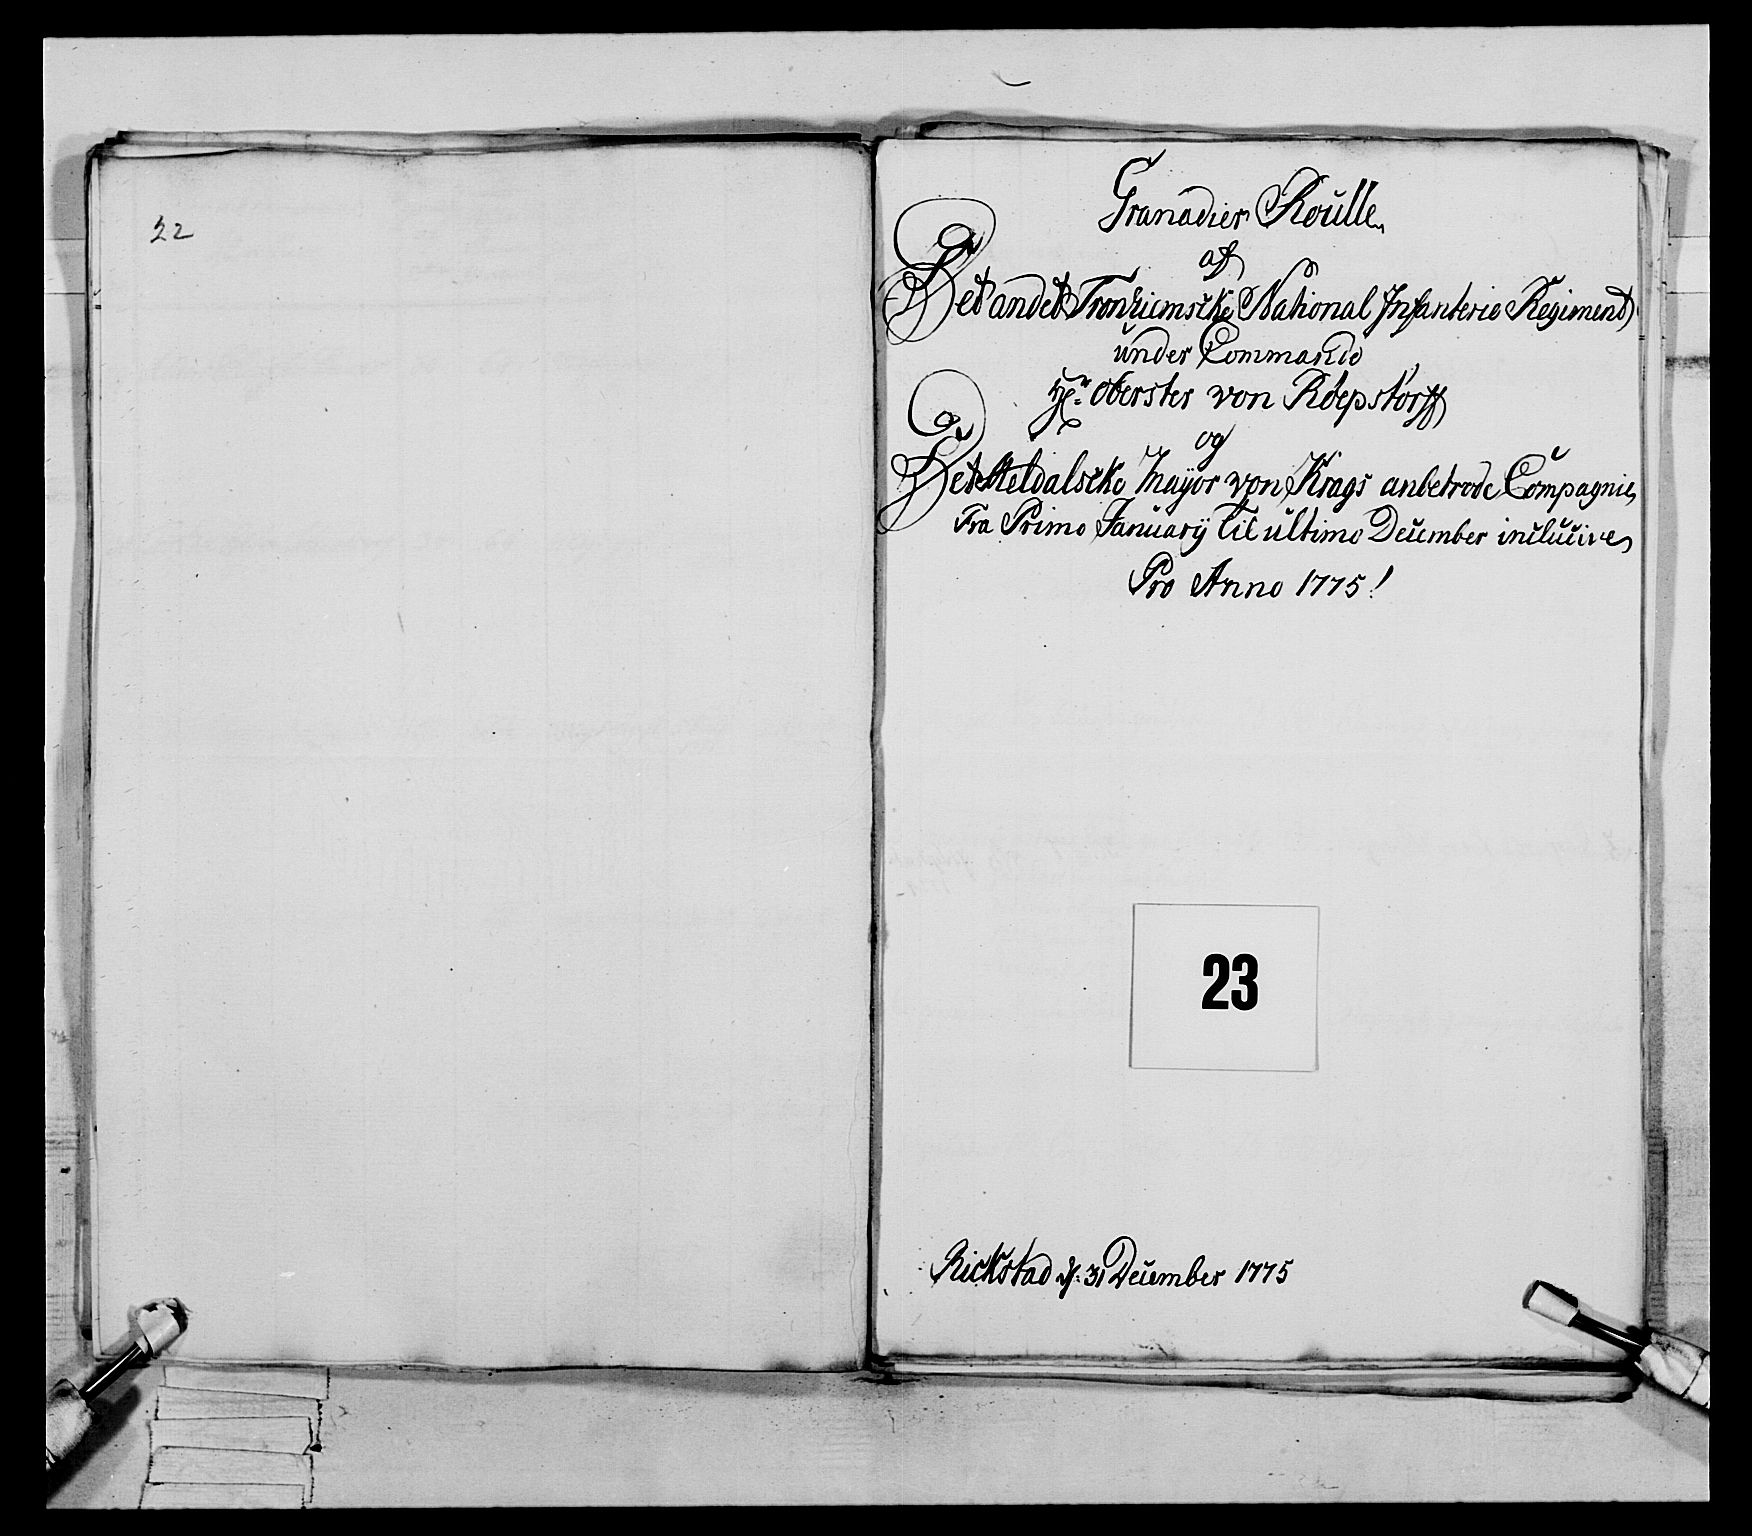 22
Granadier Roülle
af
Det andet Tronhiemske National Infanterie Regiment
ünder Commando
Hr: oberster von Röepstorff
og
Det Meldalske Mayor von Krags anbetrode Compagnie
Fra Primo Janüarÿ til ültimo December inclücive
Pro Anno 1775!
23
Rickstad d: 31 December 1775